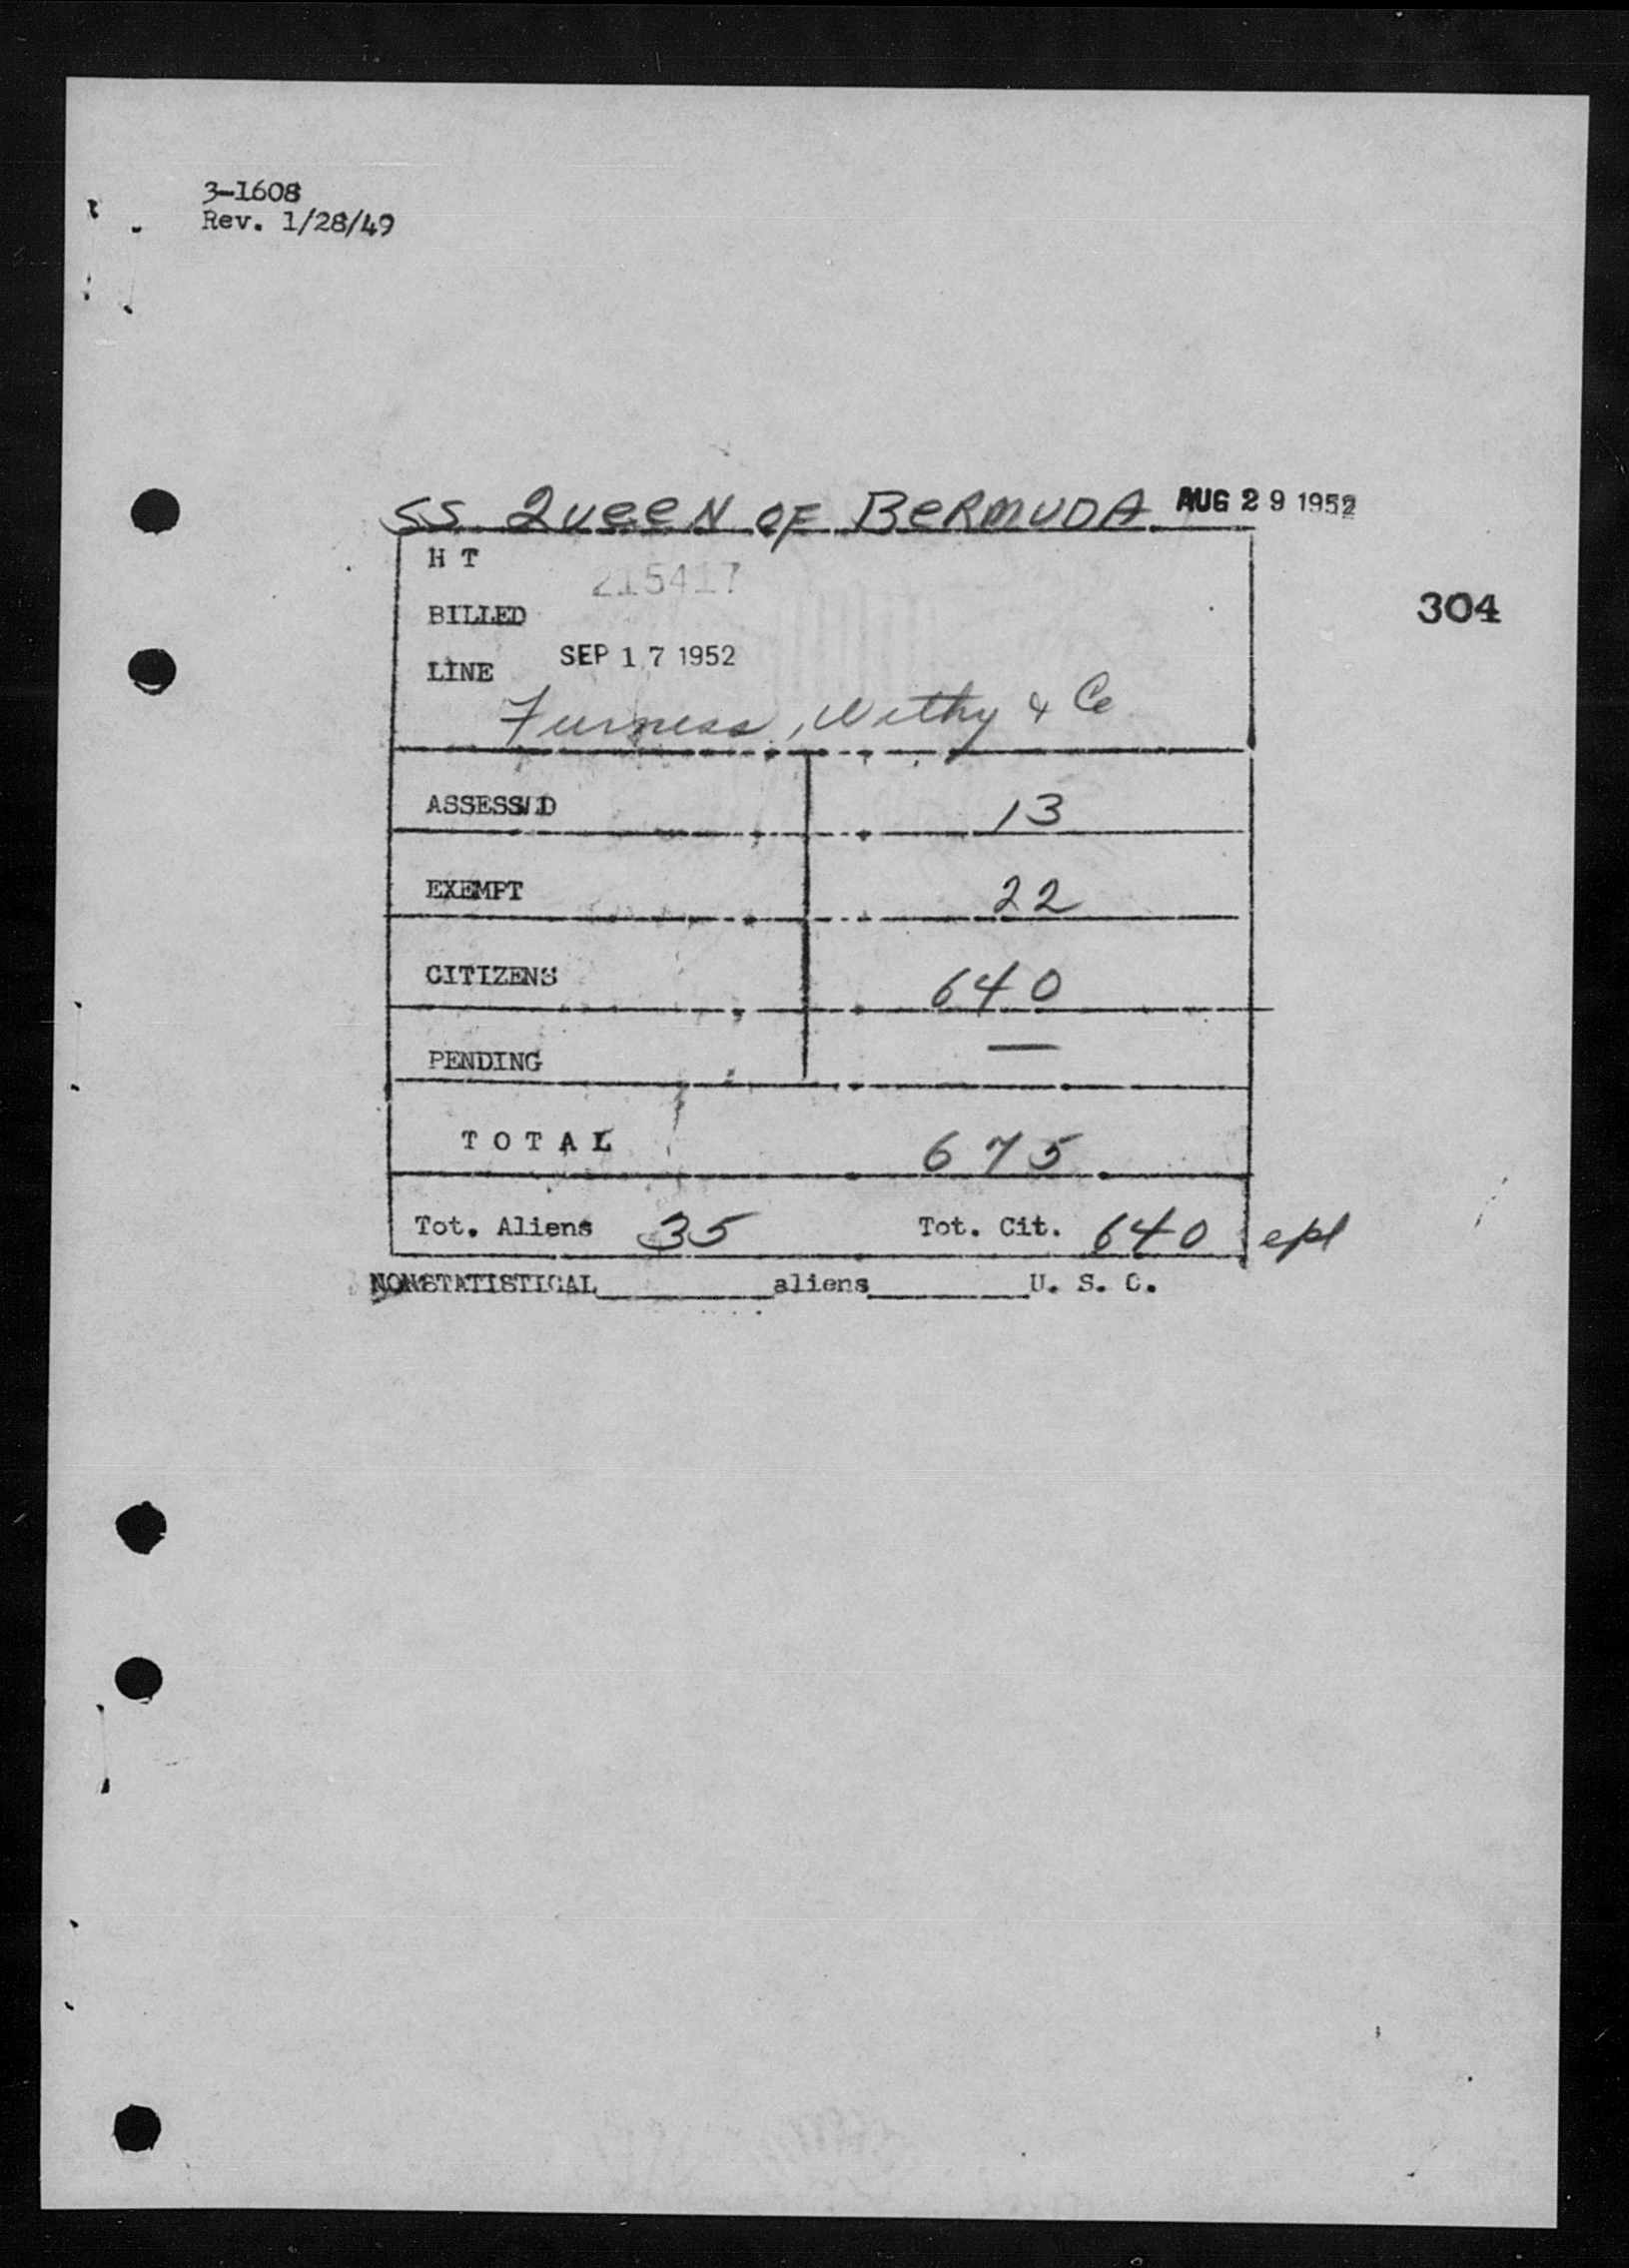 3-1608
Rev. 1/28/49
SS QUEEN OF BERMUDA AUG 29 1952
H T
215417
304
BILLED
SEP 17 1952
LINE
Furness, Withy & Co
ASSESSED 13
EXEMPT 22
CITIZENS 640
PENDING —
TOTAL 675
Tot. Aliens 35 Tot. Cit. 640 epl
NONSTATISTICAL________aliens________U. S. C.